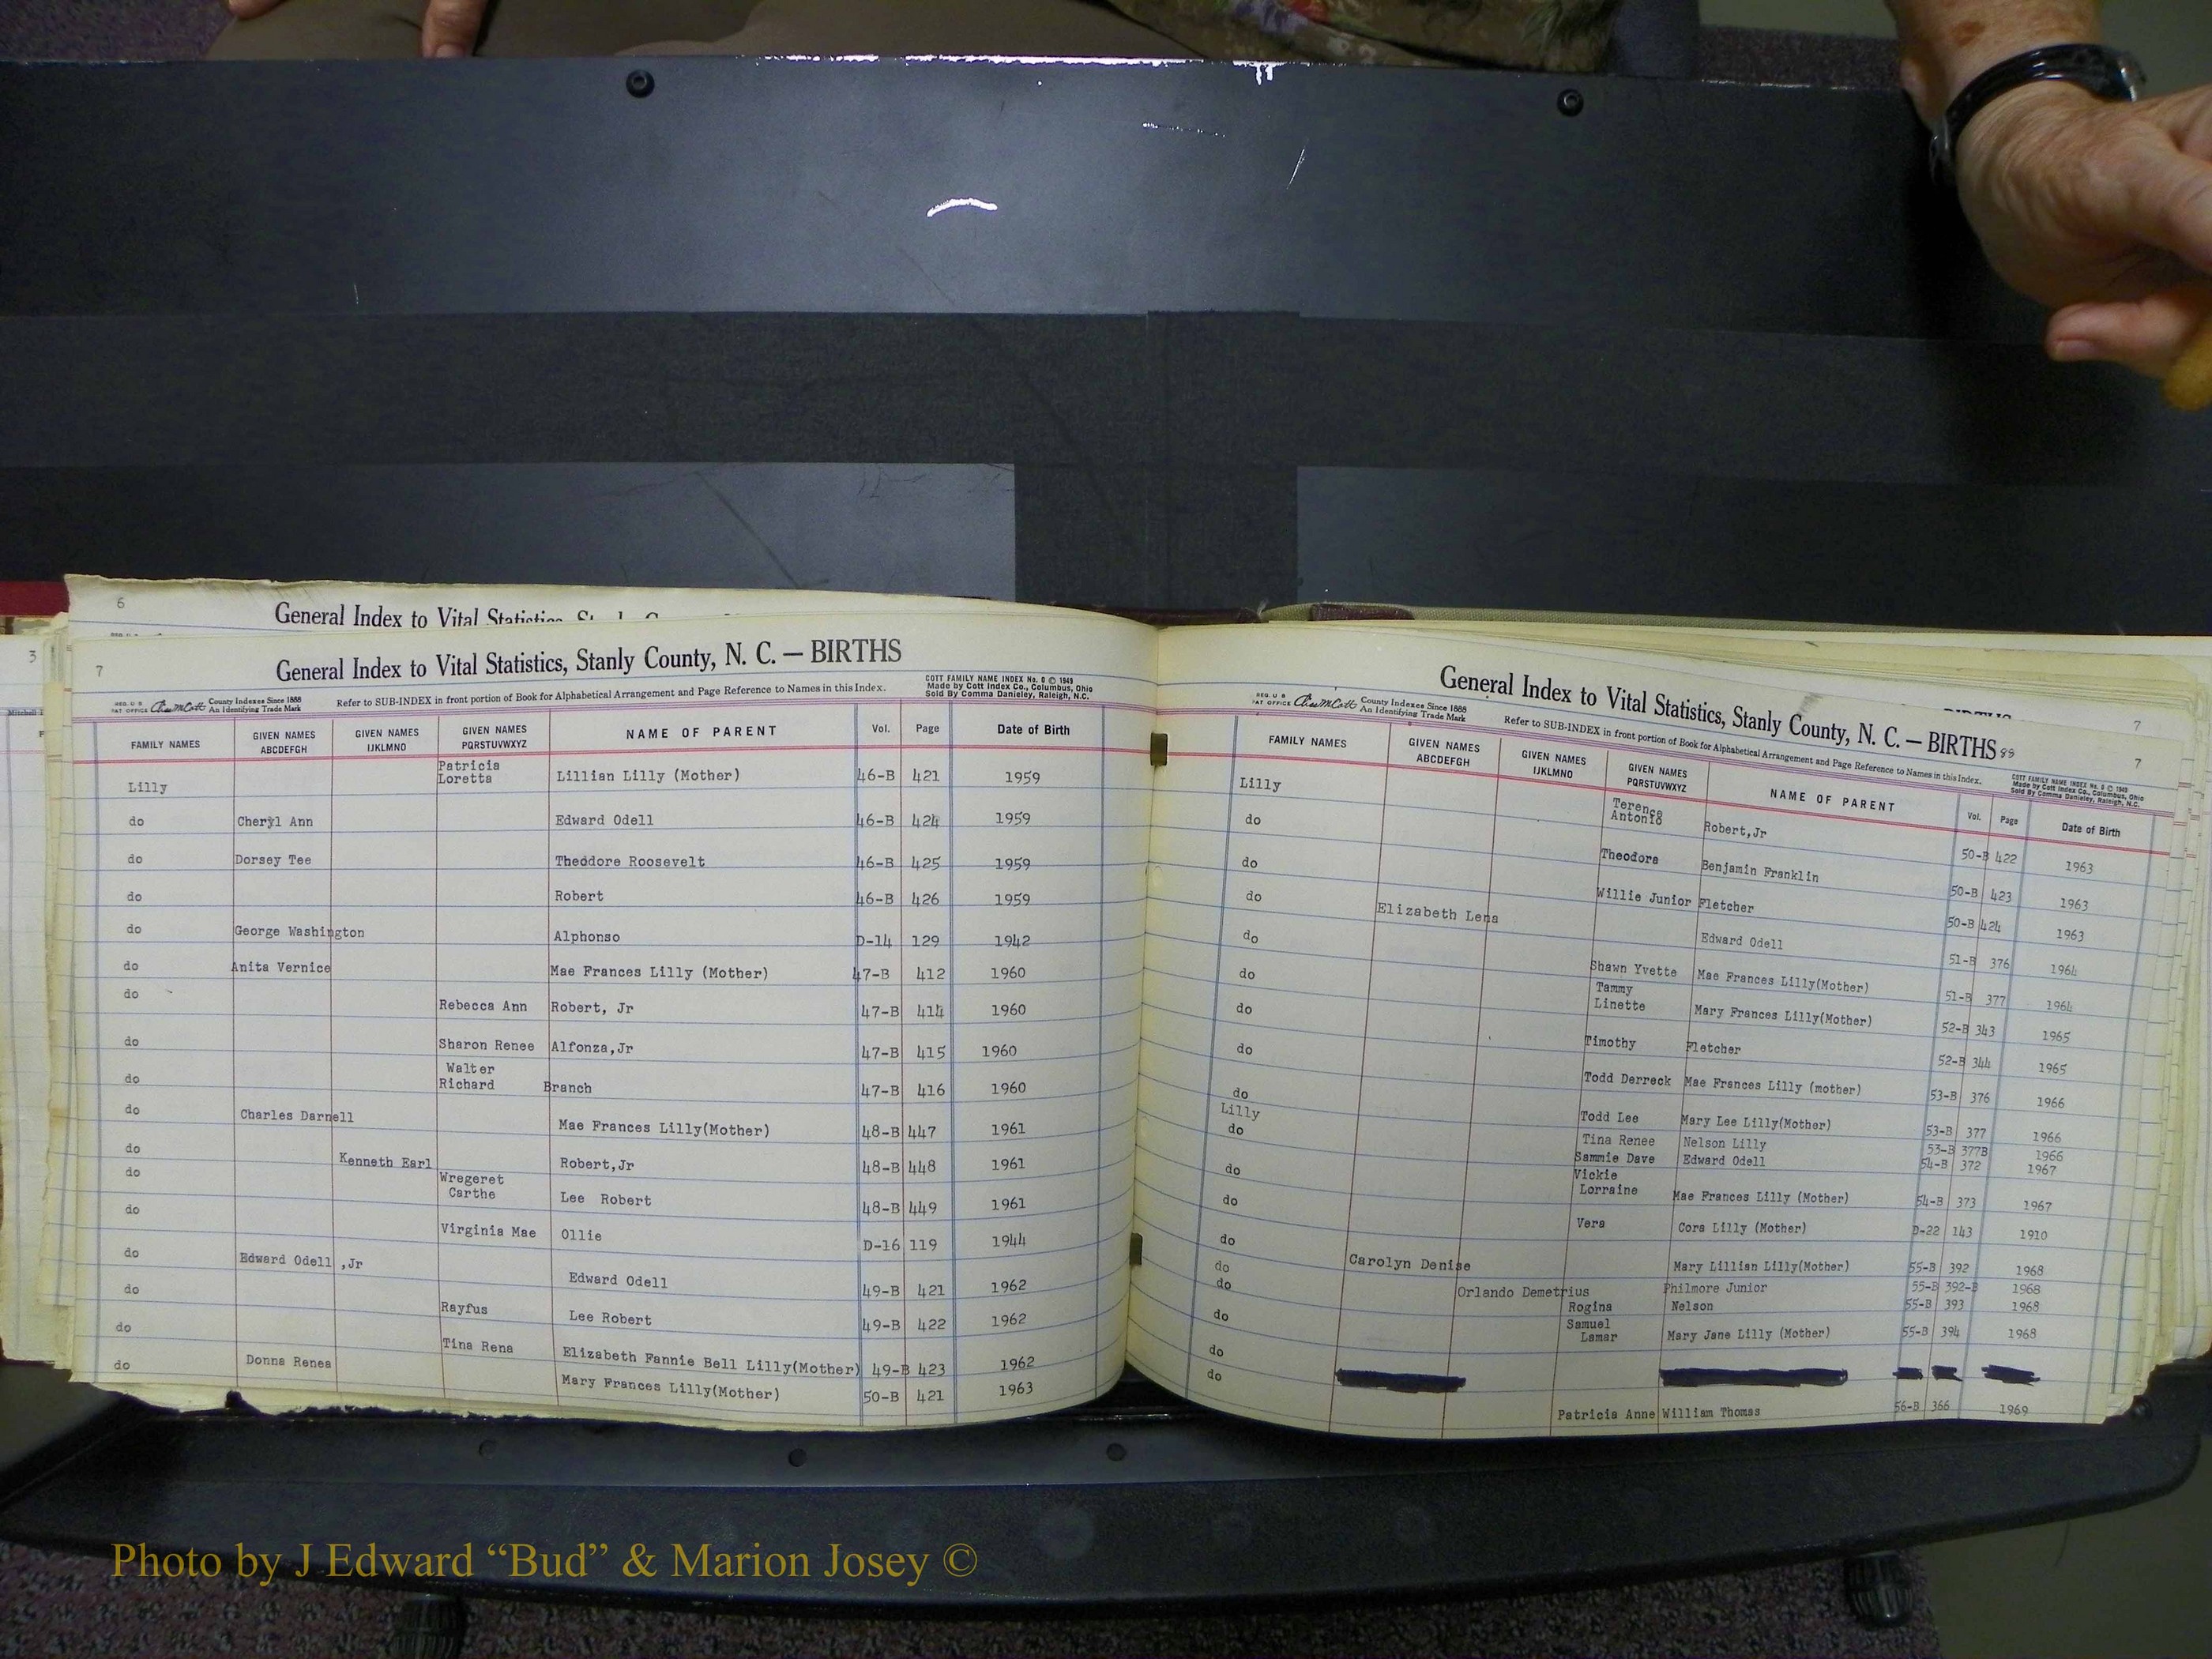 6
General Index to Vital Statistics,
3
7
General Index to Vital Statistics, Stanly County, N. C. — BIRTHS
County Indexes Since 1888
An Identifying Trade Mark
Refer to SUB-INDEX in front portion of Book for Alphabetical Arrangement and Page Reference to Names in this Index.
COTT FAMILY NAME INDEX No. 0 © 1949
Made by Cott Index Co., Columbus, Ohio
Sold By Comma Danieley, Raleigh, N.C.
FAMILY NAMES GIVEN NAMES ABCDEFGH GIVEN NAMES IJKLMNO GIVEN NAMES PQRSTUVWXYZ NAME OF PARENT Vol. Page Date of Birth
Lilly Patricia Loretta Lillian Lilly (Mother) 46-B 421 1959
do Cheryl Ann Edward Odell 46-B 424 1959
do Dorsey Tee Theodore Roosevelt 46-B 425 1959
do Robert 46-B 426 1959
do George Washington Alphonso D-14 129 1942
do Anita Vernice Mae Frances Lilly (Mother) 47-B 412 1960
do Rebecca Ann Robert, Jr 47-B 414 1960
do Sharon Renee Alfonza,Jr 47-B 415 1960
do Walter Richard Branch 47-B 416 1960
do Charles Darnell Mae Frances Lilly(Mother) 48-B 447 1961
do Kenneth Earl Robert,Jr 48-B 448 1961
do Wregeret Carthe Lee Robert 48-B 449 1961
do Virginia Mae Ollie D-16 119 1944
do Edward Odell ,Jr Edward Odell 49-B 421 1962
do Rayfus Lee Robert 49-B 422 1962
do Tina Rena Elizabeth Fannie Bell Lilly(Mother) 49-B 423 1962
do Donna Renea Mary Frances Lilly(Mother) 50-B 421 1963
7
General Index to Vital Statistics, Stanly County, N. C. — BIRTHS 88
7
County Indexes Since 1888
An Identifying Trade Mark
Refer to SUB-INDEX in front portion of Book for Alphabetical Arrangement and Page Reference to Names in this Index.
COTT FAMILY NAME INDEX No. 0 © 1949
Made by Cott Index Co., Columbus, Ohio
Sold By Comma Danieley, Raleigh, N.C.
FAMILY NAMES GIVEN NAMES ABCDEFGH GIVEN NAMES IJKLMNO GIVEN NAMES PQRSTUVWXYZ NAME OF PARENT Vol. Page Date of Birth
Lilly Terence Antonio Robert,Jr 50-B 422 1963
do Theodora Benjamin Franklin 50-B 423 1963
do Willie Junior Fletcher 50-B 424 1963
do Elizabeth Lena Edward Odell 51-B 376 1964
do Shawn Yvette Mae Frances Lilly(Mother) 51-B 377 1964
do Tammy Linette Mary Frances Lilly(Mother) 52-B 343 1965
do Timothy Fletcher 52-B 344 1965
do Todd Derreck Mae Frances Lilly (mother) 53-B 376 1966
do Todd Lee Mary Lee Lilly(Mother) 53-B 377 1966
Lilly Tina Renee Nelson Lilly 53-B 377B 1966
do Sammie Dave Edward Odell 54-B 372 1967
do Vickie Lorraine Mae Frances Lilly (Mother) 54-B 373 1967
do Vera Cora Lilly (Mother) D-22 143 1910
do Carolyn Denise Mary Lillian Lilly(Mother) 55-B 392 1968
do Orlando Demetrius Philmore Junior 55-B 392-B 1968
do Rogina Nelson 55-B 393 1968
do Samuel Lamar Mary Jane Lilly (Mother) 55-B 394 1968
do
do Patricia Anne William Thomas 56-B 366 1969
Photo by J Edward “Bud” & Marion Josey ©